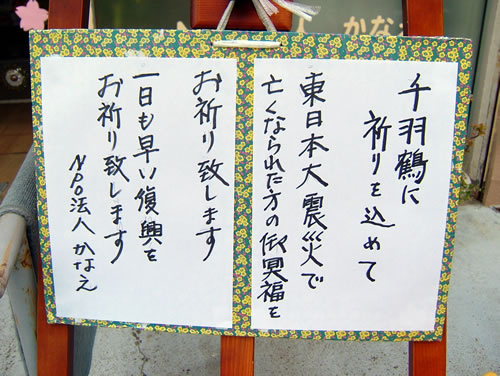 千羽鶴に
祈りを込めて
東日本大震災で
亡くなられた方の御冥福を
お祈り致します
一日も早い復興を
お祈り致します
NPO法人かなえ
人 かなえ